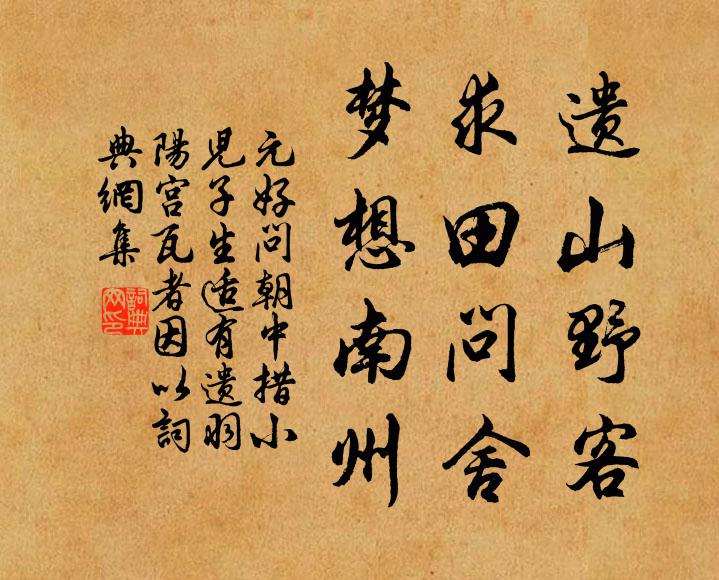 遗山野客
求田问舍
梦想南州
元好问朝中措小
児子生适有遗羽
陽宫瓦者因以詞
典網集
詞典
网印